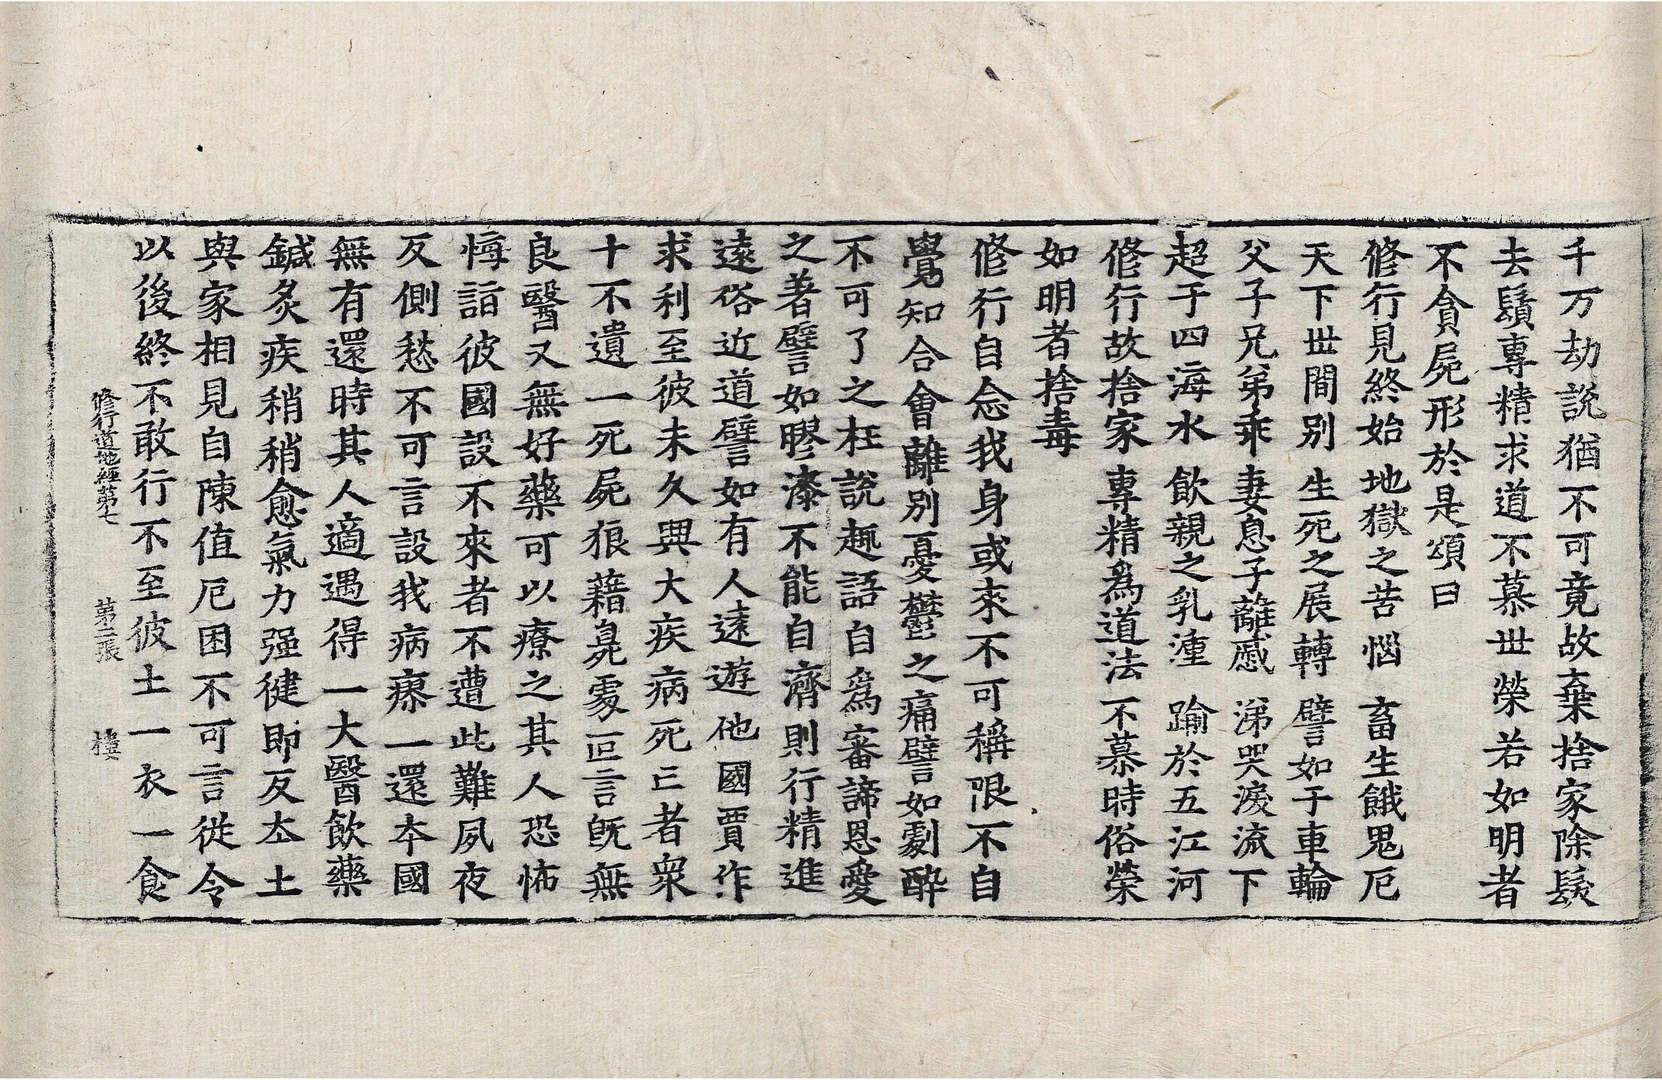 千万劫說猶不可竟故棄捨家除鬚
去鬚專精求道不慕世榮若如明者
不貪屍形於是頌曰
修行見終始 地獄之苦惱 畜生餓鬼厄
天下世間別 生死之展轉 譬如于車輪
父子兄弟乖 妻息子離慼 涕哭淚流下
超于四海水 飲親之乳湩 踰於五江河
修行故捨家 專精爲道法 不慕時俗榮
如明者捨毒
修行自念我身或來不可稱限不自
覺知合會離別憂鬱之痛譬如劇醉
不可了之枉說趣語自爲審諦恩愛
之著譬如膠漆不能自濟則行精進
遠俗近道譬如有人遠遊他國賈作
求利至彼未久興大疾病死亡者衆
十不遺一死屍狼藉臭處叵言旣無
良醫又無好藥可以療之其人恐怖
悔詣彼國設不來者不遭此難夙夜
反側愁不可言設我病瘳一還本國
無有還時其人適遇得一大醫飲藥
鍼灸疾稍稍愈氣力强健即反本土
與家相見自陳值厄困不可言從今
以後終不敢行不至彼土一衣一食
修行道地經第七 第二張 樓